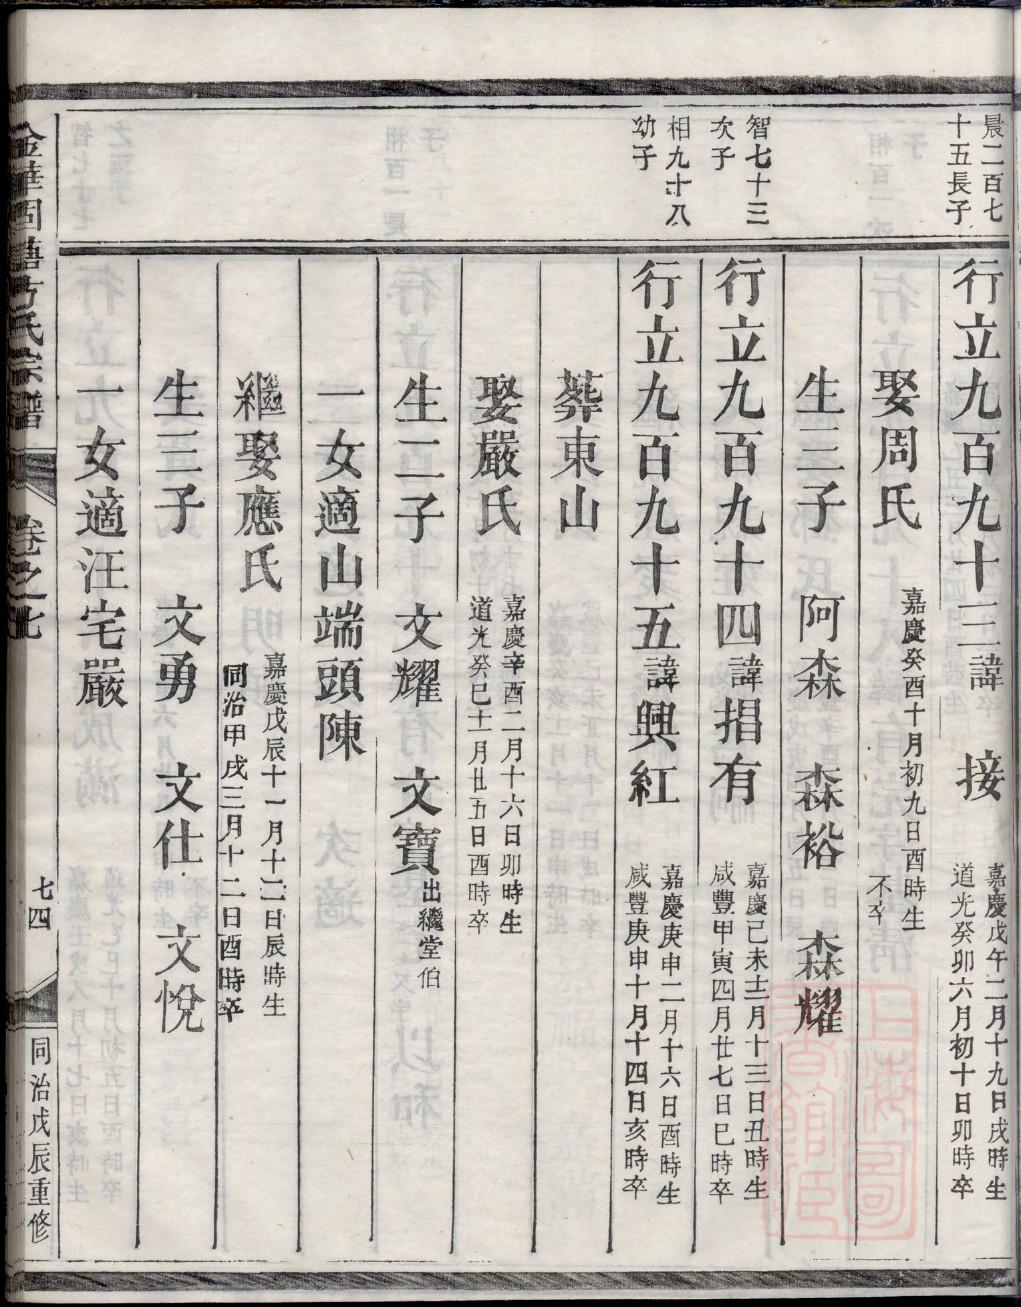 晨二百七
十五長子
行立九百九十三諱　接
嘉慶戊午二月十九日戌時生
道光癸卯六月初十日卯時卒
娶周氏
嘉慶癸酉十月初九日酉時生
不卒
生三子　阿森　森裕　森耀
智七十三
次子
行立九百九十四諱捐有
嘉慶己未十二月十三日丑時生
咸豐甲寅四月廿七日巳時卒
相九十八
幼子
行立九百九十五諱興紅
嘉慶庚申二月十六日酉時生
咸豐庚申十月十四日亥時卒
葬東山
娶嚴氏
嘉慶辛酉二月十六日卯時生
道光癸巳十一月廿五日酉時卒
生二子　文耀　文寶出繼堂伯
一女適山端頭陳
繼娶應氏
嘉慶戊辰十一月十二日辰時生
同治甲戌三月十二日酉時卒
生三子　文勇　文仕　文悅
一女適汪宅嚴
金華固塘方氏宗譜
卷之七
七四
同治戊辰重修